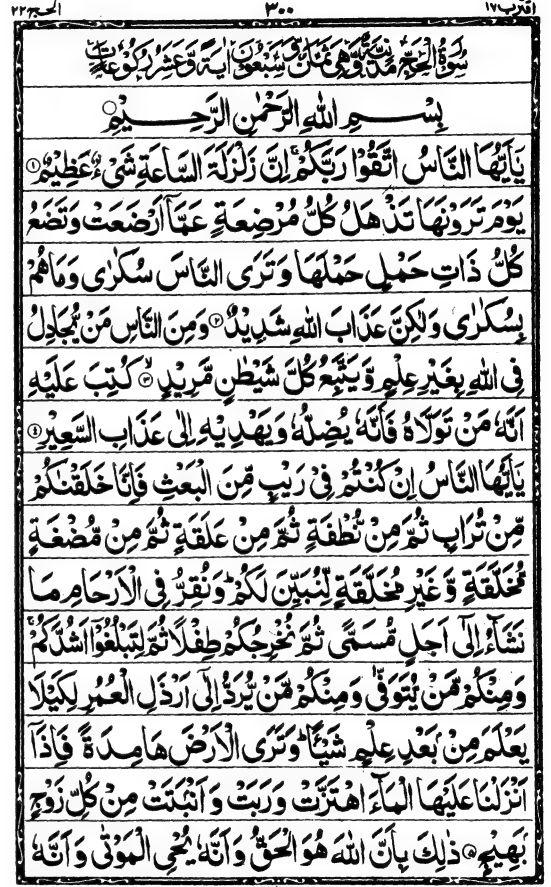 اقترب ١٧ ٣٠٠ الحج ٢٢
سُوْرَةُ الْحَجِّ مَدَنِيَّةٌ وَّهِىَ ثَمَانٌ وَّسَبْعُوْنَ اٰيَةً وَّعَشَرُ رُكُوْعَاتٍ
بِسْمِ اللهِ الرَّحْمٰنِ الرَّحِيْمِ
يٰۤاَيُّهَا النَّاسُ اتَّقُوْا رَبَّكُمْ ۚ اِنَّ زَلْزَلَةَ السَّاعَةِ شَىْءٌ عَظِيْمٌ ۝١
يَوْمَ تَرَوْنَهَا تَذْهَلُ كُلُّ مُرْضِعَةٍ عَمَّاۤ اَرْضَعَتْ وَتَضَعُ
كُلُّ ذَاتِ حَمْلٍ حَمْلَهَا وَتَرَى النَّاسَ سُكٰرٰى وَمَا هُمْ
بِسُكٰرٰى وَلٰكِنَّ عَذَابَ اللهِ شَدِيْدٌ ۝٢ وَمِنَ النَّاسِ مَنْ يُّجَادِلُ
فِى اللهِ بِغَيْرِ عِلْمٍ وَّيَتَّبِعُ كُلَّ شَيْطٰنٍ مَّرِيْدٍ ۝٣ ۙ كُتِبَ عَلَيْهِ
اَنَّهٗ مَنْ تَوَلَّاهُ فَاَنَّهٗ يُضِلُّهٗ وَيَهْدِيْهِ اِلٰى عَذَابِ السَّعِيْرِ ۝٤
يٰۤاَيُّهَا النَّاسُ اِنْ كُنْتُمْ فِىْ رَيْبٍ مِّنَ الْبَعْثِ فَاِنَّا خَلَقْنٰكُمْ
مِّنْ تُرَابٍ ثُمَّ مِنْ نُّطْفَةٍ ثُمَّ مِنْ عَلَقَةٍ ثُمَّ مِنْ مُّضْغَةٍ
مُّخَلَّقَةٍ وَّغَيْرِ مُخَلَّقَةٍ لِّنُبَيِّنَ لَكُمْ ؕ وَنُقِرُّ فِى الْاَرْحَامِ مَا
نَشَآءُ اِلٰۤى اَجَلٍ مُّسَمًّى ثُمَّ نُخْرِجُكُمْ طِفْلًا ثُمَّ لِتَبْلُغُوْۤا اَشُدَّكُمْ ۚ
وَمِنْكُمْ مَّنْ يُّتَوَفّٰى وَمِنْكُمْ مَّنْ يُّرَدُّ اِلٰۤى اَرْذَلِ الْعُمُرِ لِكَيْلَا
يَعْلَمَ مِنْۢ بَعْدِ عِلْمٍ شَيْـًٔا ؕ وَتَرَى الْاَرْضَ هَامِدَةً فَاِذَاۤ
اَنْزَلْنَا عَلَيْهَا الْمَآءَ اهْتَزَّتْ وَرَبَتْ وَاَنْۢبَتَتْ مِنْ كُلِّ زَوْجٍۭ
بَهِيْجٍ ۝٥ ذٰلِكَ بِاَنَّ اللهَ هُوَ الْحَقُّ وَاَنَّهٗ يُحْىِ الْمَوْتٰى وَاَنَّهٗ